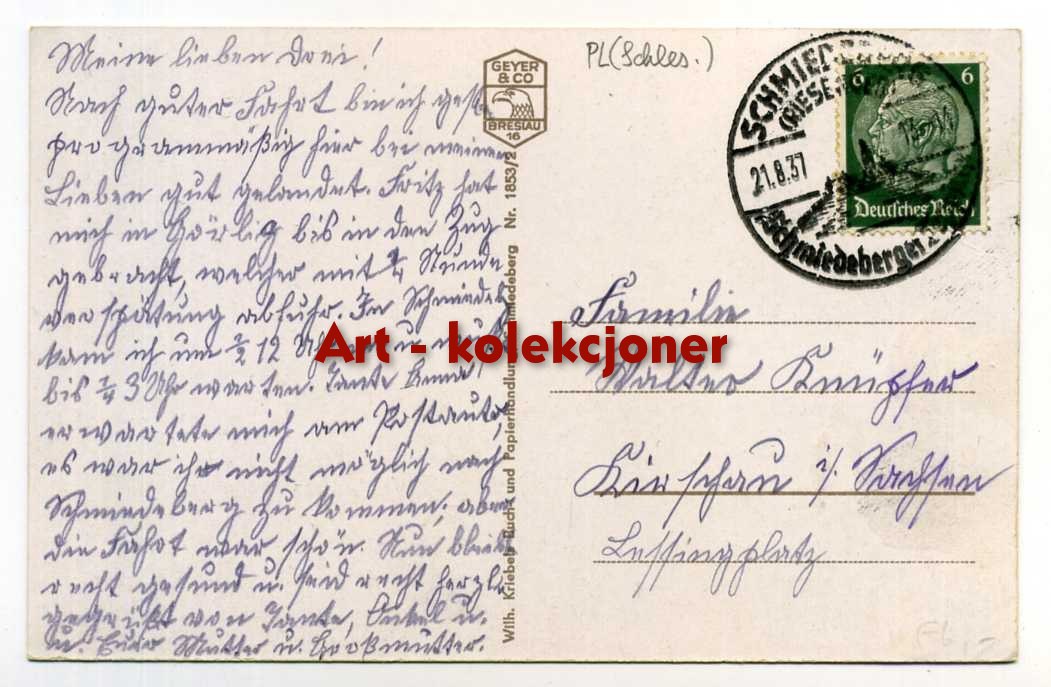 Meine lieben Drei!
Nach guter Fahrt bin ich gest.
programmäßig hier bei meinen
Lieben gut gelandet. Fritz hat
mich in Görlitz bis in den Zug
gebracht, welcher mit 1/4 Stunde
verspätung abfuhr. In Schmiedeb.
kam ich um 1/2 12 Uhr u. mußte
bis 3/4 3 Uhr warten. Tante
erwartete mich am Postauto,
es war ihr nicht möglich nach
Schmiedeberg zu kommen, aber
die Fahrt war schön. Nun bleibt
recht gesund u. seid recht herzl.
gegrüßt von Tante, Onkel u.
u. Eurer Mutter u. Großmutter.
GEYER
& CO
BRESLAU
16
Wilh. Kriebels Buch- und Papierhandlung, Schmiedeberg Nr. 1853/2
PL (Schles.)
SCHMIEDEBERG
(RIESENGEB)
21.8.37
Schmiedeberger
6 6
Deutsches Reich
Familie
Walter Knüpfer
Kirschau i/ Sachsen
Lessingplatz
Art - kolekcjoner